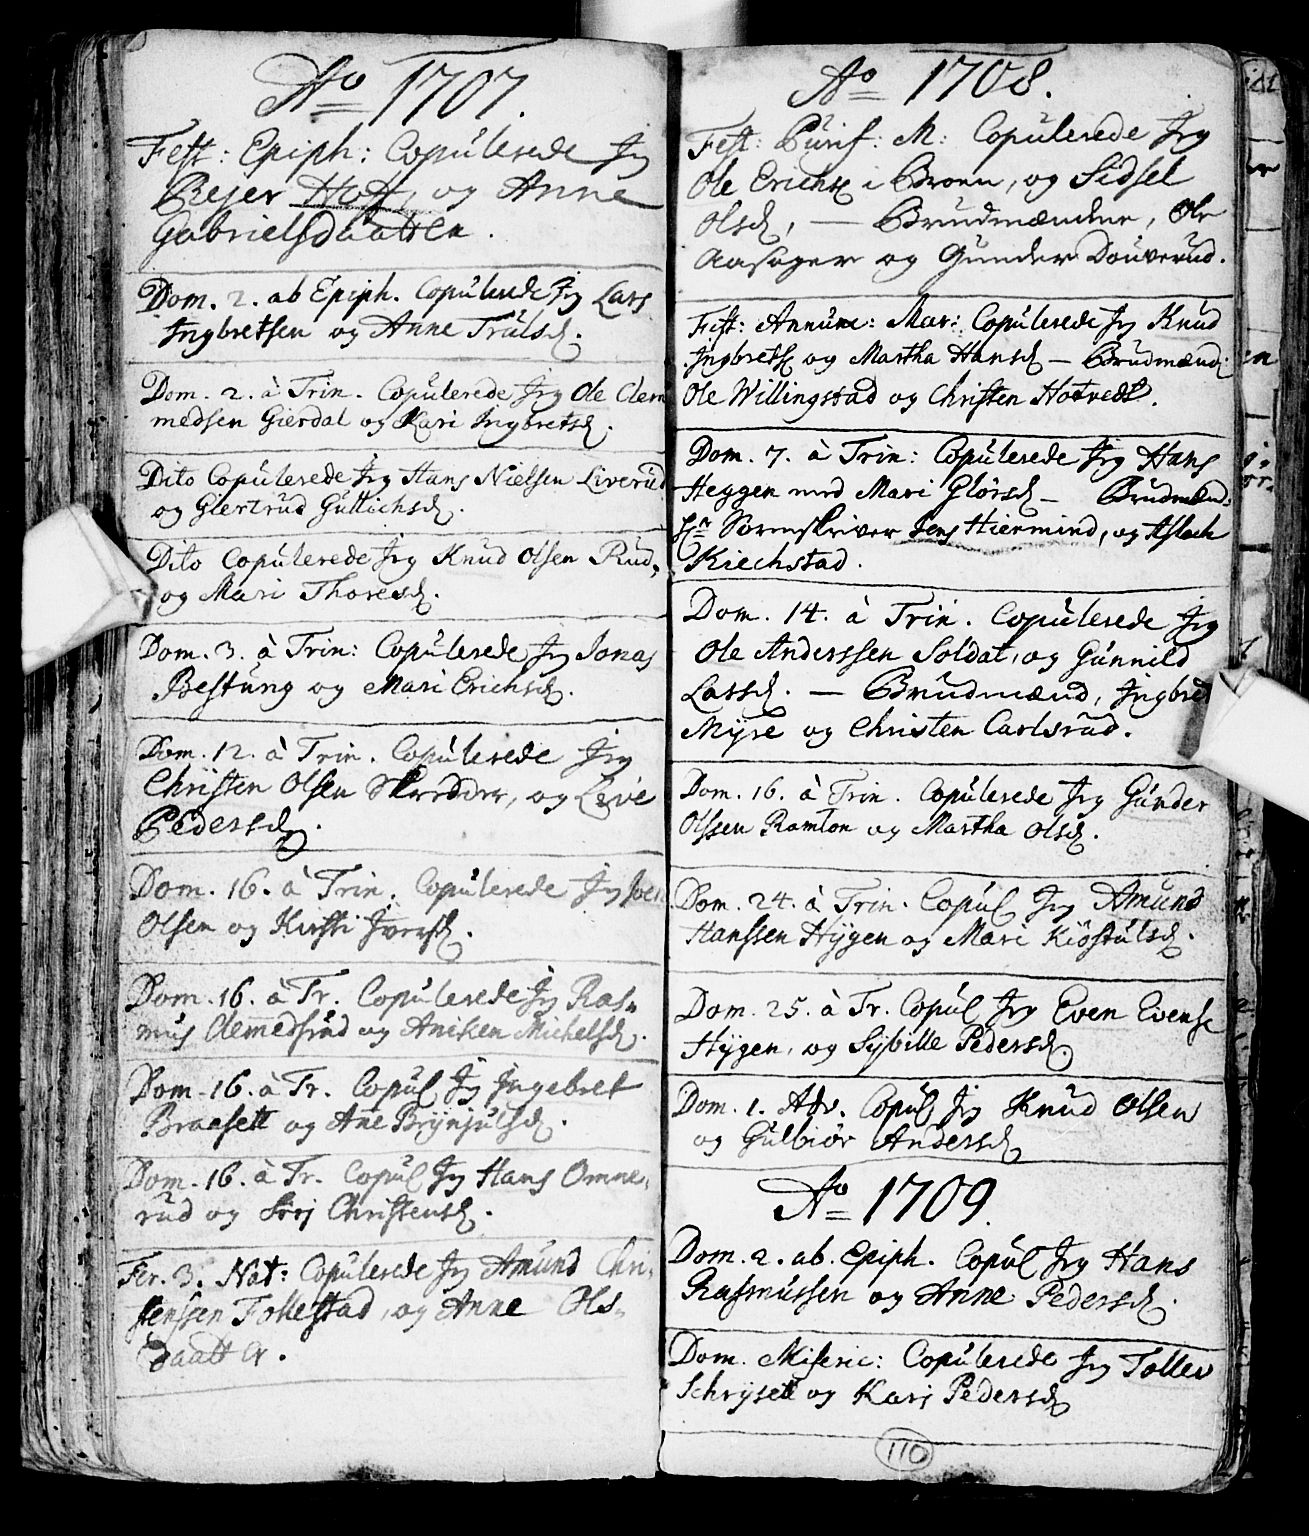 Ao 1707.
Fest: Epiph: Copulerede Jeg
Bejer Hoff, og Anne
Gabrielsdaatter.
Dom. 2. ab Epiph. Copulerede Jeg Lars
Ingbretsen og Anne Trulsd.
Dom. 2. à Trin. Copulerede Jeg Ole Clem
medsen Gierdal og Kari Ingbretsd.
Dito Copulerede Jeg Hans Nielsen Liverud
og Giertrud Gullichsd.
Dito Copulerede Jeg Knud Olsen Rud,
og Mari Thoresd.
Dom. 3. à Trin: Copulerede Jeg Jonas
Bestung og Mari Erichsd.
Dom. 12. à Trin. Copulerede Jeg
Christen Olsen Skredder, og Live
Pedersd.
Dom. 16. à Trin. Copulerede Jeg Joen
Olsen og Kirsti Iversd.
Dom. 16. à Tr. Copulerede Jeg Ras-
mus Clemedsrud og Aniken Michelsd.
Dom. 16. à Tr. Copul Jeg Ingebret
Braesett og Ane Brynjulsd.
Dom. 16. à Tr. Copul Jeg Hans Omne-
rud og Siri Christensd.
Fer. 3. Nat: Copulerede Jeg Amund Chri-
stenssen Tollefstad, og Anne Ols-
daatter.
Ao 1708.
Fest: Purif: M: Copulerede Jeg
Ole Erichs i Broen, og Sidsel
Olsd, — Brudmændene, Ole
Aasager og Gunder Douverud.
Fest: Annunc: Mar: Copulerede Jeg Knud
Ingbrets og Martha Hansd — Brudmænd:
Ole Willingstad og Christen Hotvedt.
Dom. 7. à Trin: Copulerede Jeg Hans
Heggen med Mari Glørsd — Brudmænd:
Hr Sorenskriver Jens Hiermind, og Aslach
Kiechstad.
Dom. 14. à Trin. Copulerede Jeg
Ole Anderssen Soldat, og Gunnild
Larsd. — Brudmænd, Ingbret
Myre og Christen Carlsrud.
Dom. 16. à Trin. Copulerede Jeg Gunder
Olssen Ramton og Martha Olsd.
Dom. 24. à Trin. Copul Jeg Amund
Hanssen Hygen og Mari Kiøstulsd.
Dom. 25. à Tr. Copul Jeg Even Evens
Hygen, og Sybille Pedersd.
Dom. 1. Adv. Copul Jeg Knud Olsen
og Gulbiør Andersd
Ao 1709.
Dom. 2. ab. Epiph. Copul Jeg Hans
Rasmussen og Anne Pedersd.
Dom. Miseric: Copulerede Jeg Tollev
Schrysett og Karj Pedersd
110